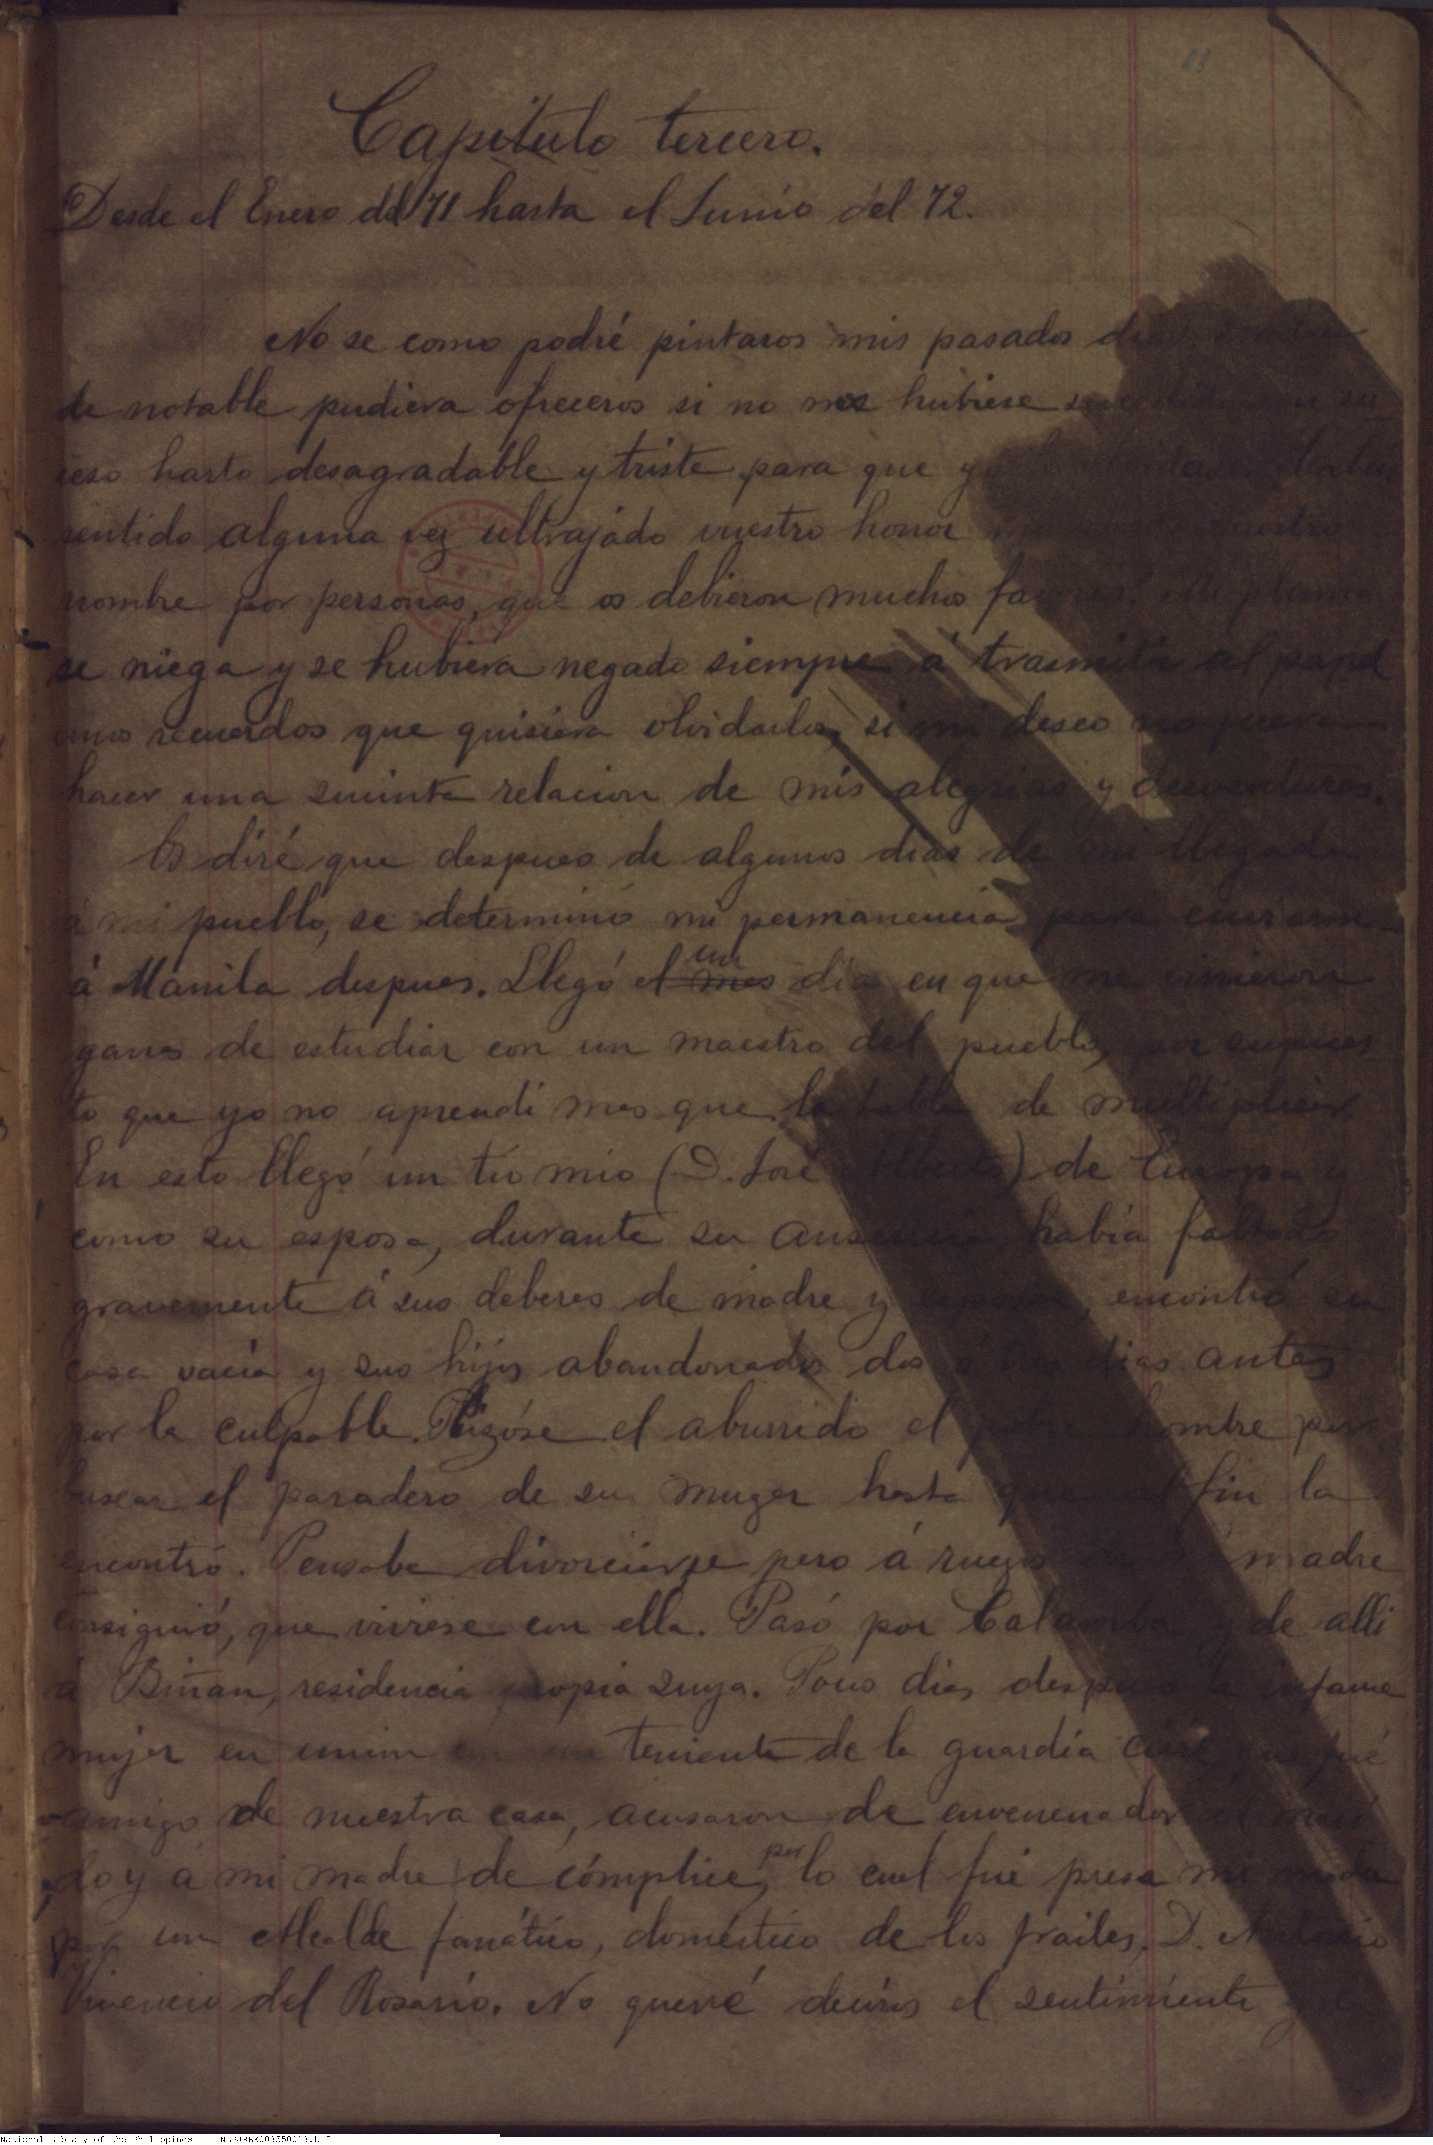 11
Capítulo tercero.
Desde el Enero del 71 hasta el Junio del 72.
No se como podré pintaros mis pasados
de notable pudiera ofreceros si no me hubiese su
ceso harto desagradable y triste para que
sentido alguna vez ultrajado vuestro honor vuestro
nombre por personas, que os debieron muchos favores? Mi pluma
se niega y se hubiera negado siempre á trasmitir al papel
unos recuerdos que quisiera olvidarlos, si mi deseo no fuera
hacer una suinta relacion de mis alegrias y desventuras.
Os diré que despues de algunos dias de mi llegada
á mi pueblo, se determinó mi permanencia para enviarme
á Manila despues. Llegó el mes un dia en que me vinieron
ganas de estudiar con un maestro del pueblo, por supues
to que yo no aprendi mas que la tabla de multiplicar
En esto llegó un tio mio (D. José Alberto) de Europa y
como su esposa, durante su ausencia, habia faltado
gravemente á sus deberes de madre y esposa, encontró su
casa vacía y sus hijos abandonados dos ó tres dias antes
por la culpable. Hizóse el aburrido el pobre hombre por
buscar el paradero de su muger hasta que al fin la
encontró. Pensaba divorciarse pero á ruegos de mi madre
consiguió, que viviese con ella. Pasó por Calamba y de alli
á Biñan, residencia propia suya. Pocos dias despues la infame
mujer en union con un teniente de la guardia civil, que fué
amigo de nuestra casa, acusaron de envenenador al mari
do y á mi madre de cómplice, por lo cual fué presa mi madre
por un Alcalde fanático, doméstico de los frailes, D. Antonio
Vivencio del Rosario. No querré deciros el sentimiento
National Library of the Philippines